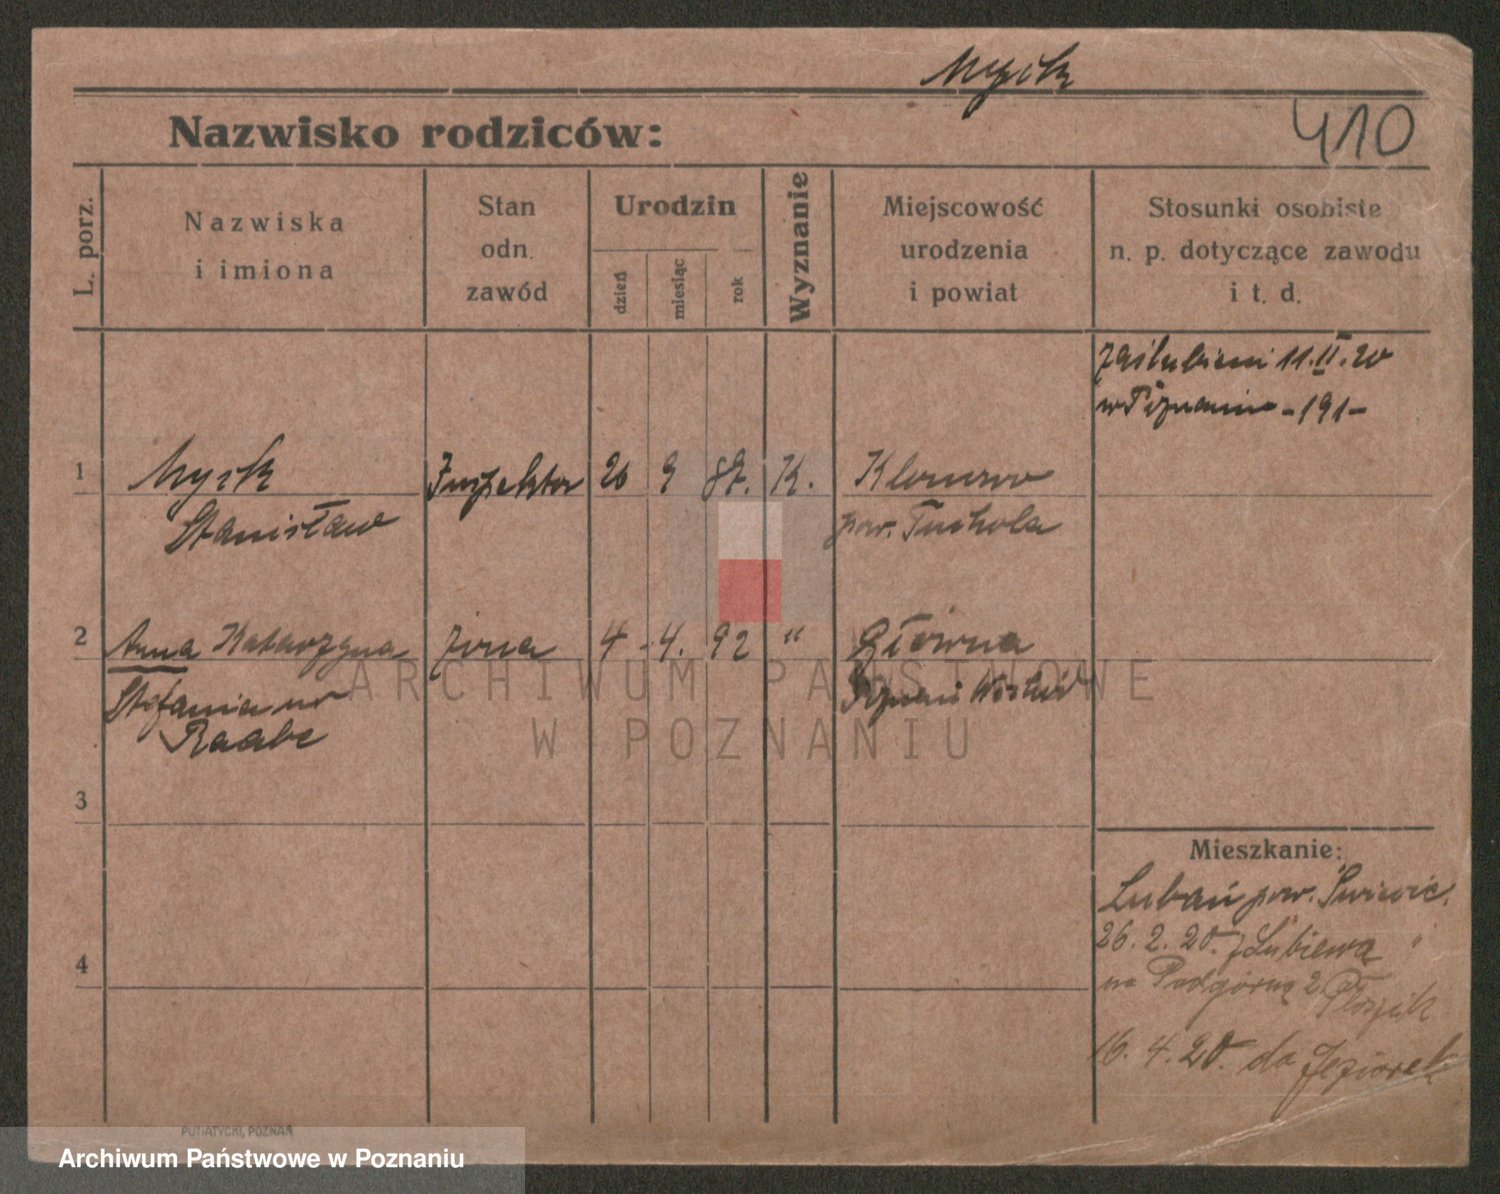 Mysik
410
Nazwisko rodziców:
L. porz.
Nazwiska
i imiona
Stan
odn.
zawód
Urodzin
dzień
miesiąc
rok
Wyznanie
Miejscowość
urodzenia
i powiat
Stosunki osobiste
n. p. dotyczące zawodu
i t. d.
Zaślubieni 11.II.20
w Poznaniu -191-
1 Mysik Inspektor 26 9 K.
Stanisław pow. Tuchola
2 Anna Katarzyna żona 4 - 4. 92 " Główna
Stefania ur Poznań Wschód
Raabe
3
Mieszkanie:
Lubań pow.
26. 2. 20. z Lubiewa "
na Podgórną 2
4
16. 4. 20. do Jeziorek
PUTIATYCKI, POZNAŃ
ARCHIWUM PAŃSTWOWE
W POZNANIU
Archiwum Państwowe w Poznaniu